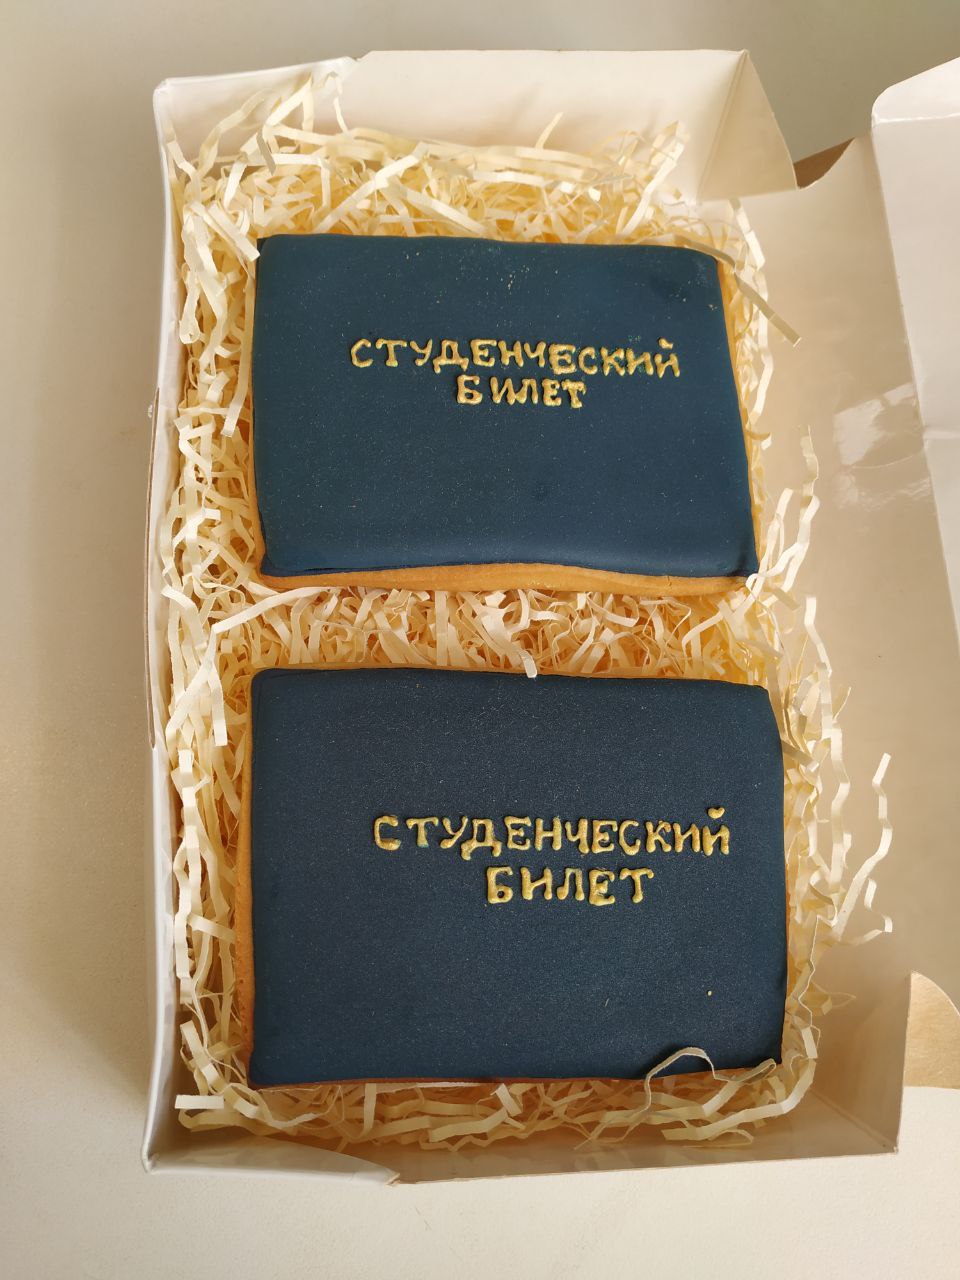 СТУДЕНЧЕСКИЙ
БИЛЕТ
СТУДЕНЧЕСКИЙ
БИЛЕТ